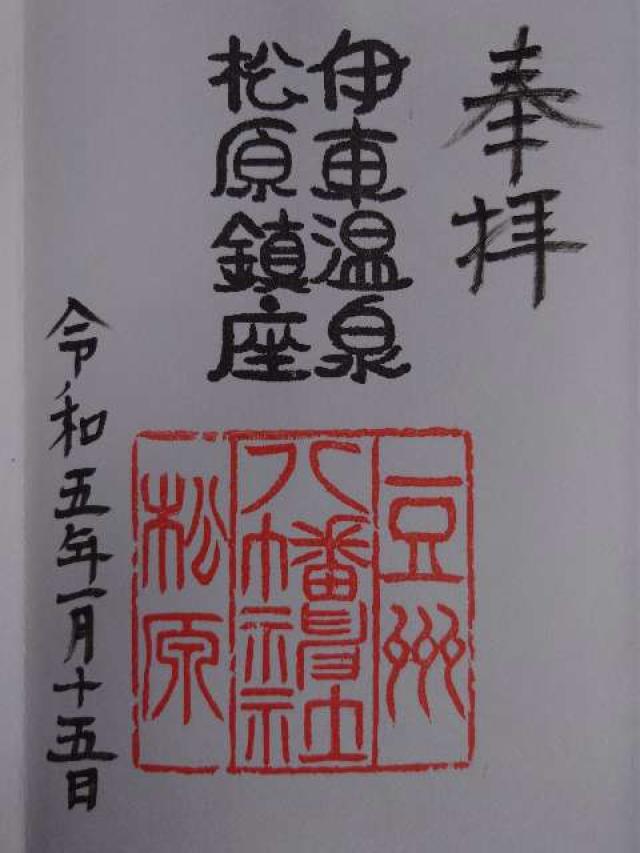 奉拝
伊東温泉
松原鎮座
豆州
八幡神社
松原
令和五年一月十五日